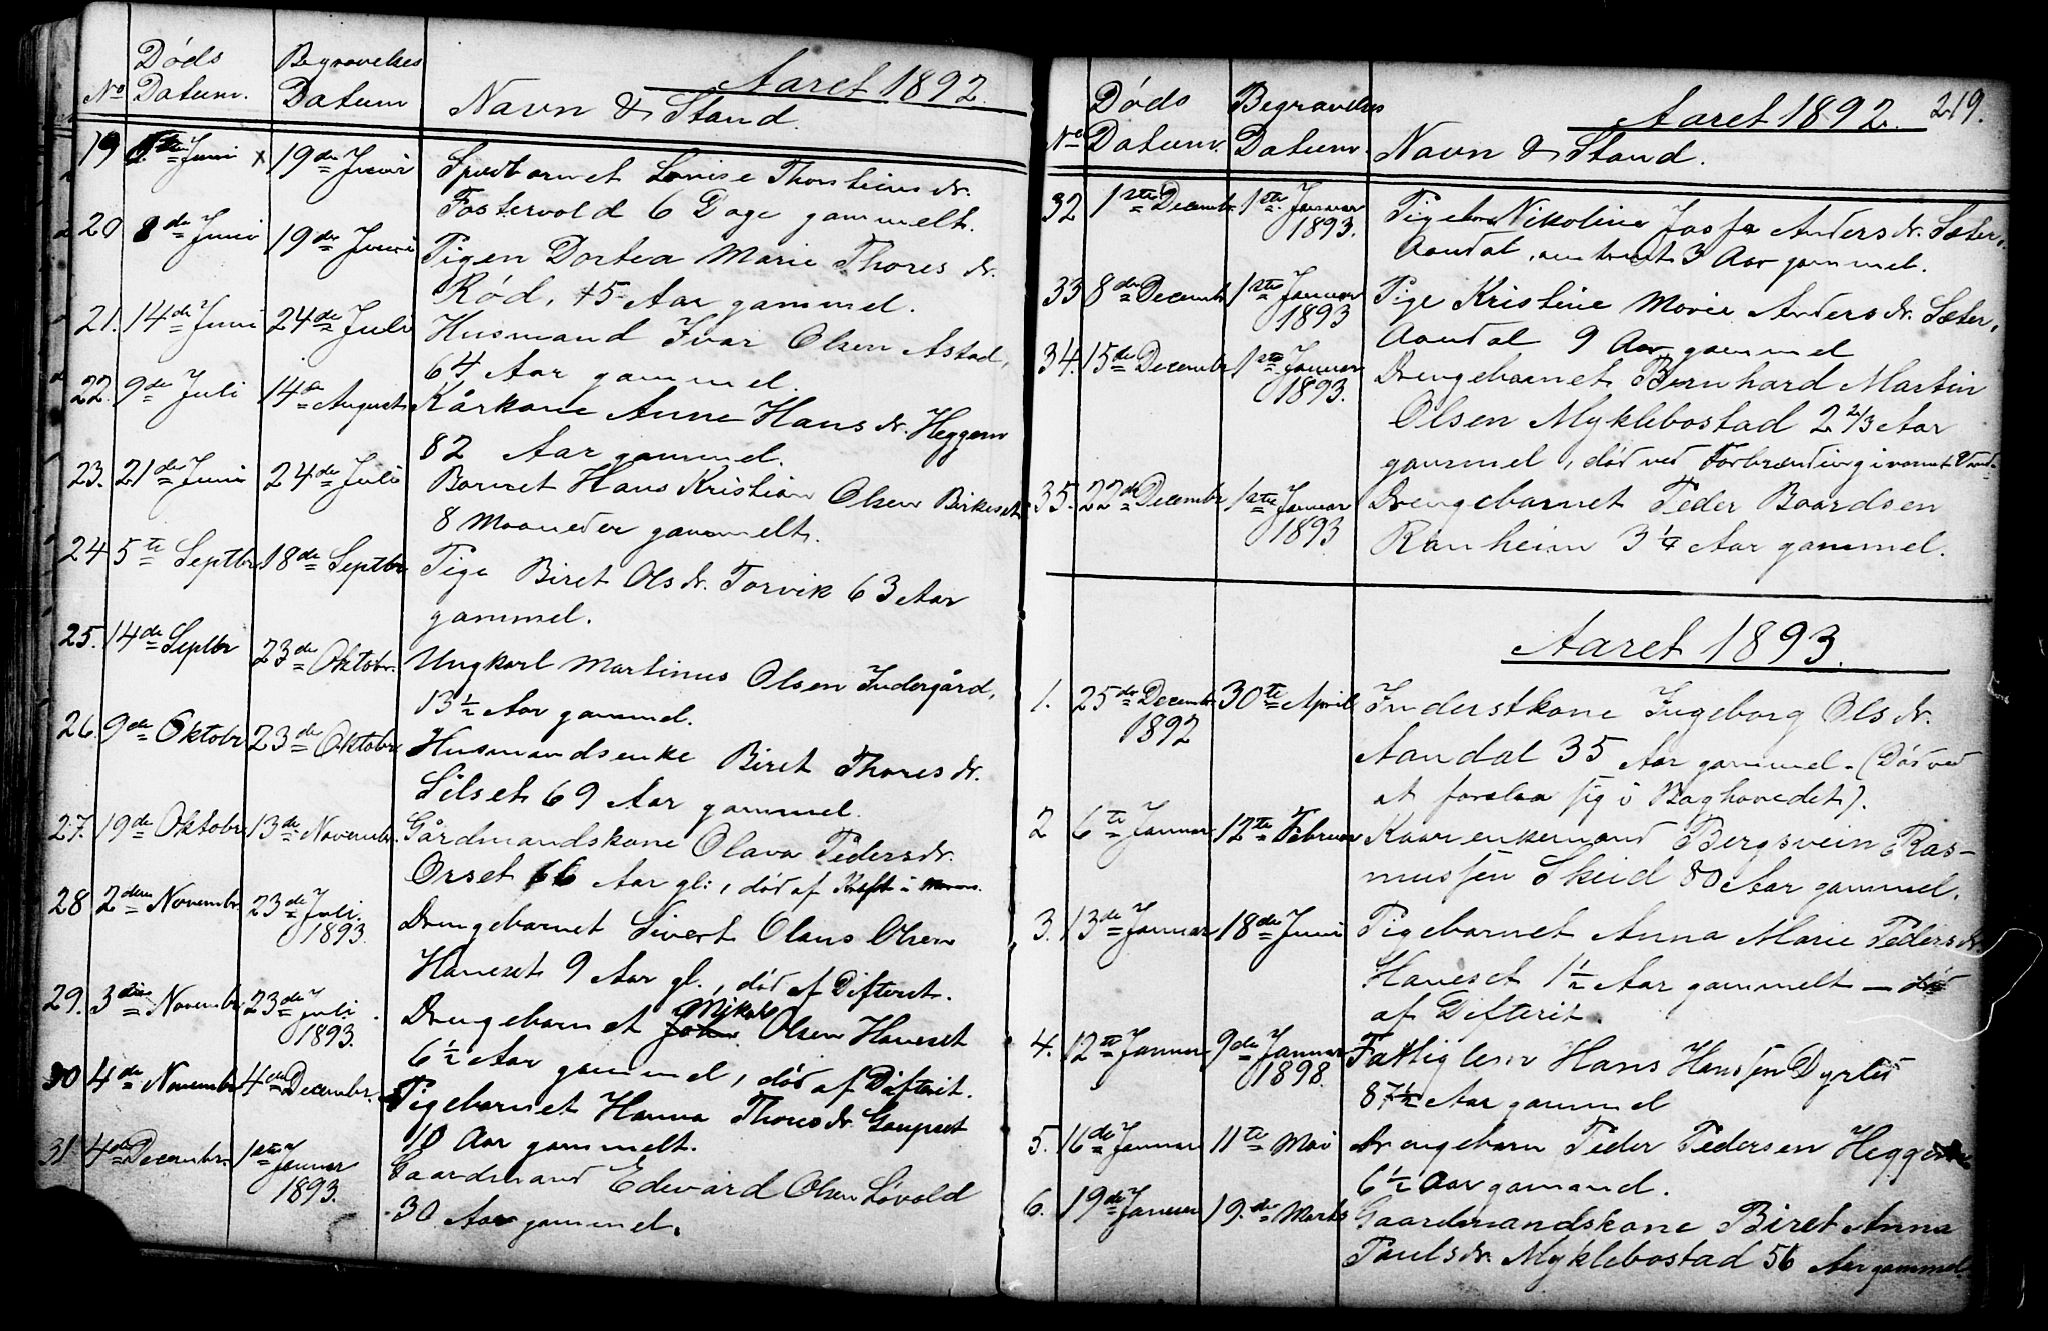 Aaret 1892.
No Døds Datum. Begravelses Datum Navn & Stand.
19 Juni x 19de Juni Spædbarnet Lovise Thorsteinsdr.
Fostervold 6 Dage gammelt.
20 8de Juni 19de Juni Pigen Dortea Marie Thoresdr.
Rød, 45 Aar gammel.
21. 14de Juni 24de Juli Husmand Ivar Olsen Astad,
64 Aar gammel.
22. 9de Juli 14de August Kårkone Anne Hansdr. Heggem
82 Aar gammel.
23. 21de Juni 24de Juli Barnet Hans Kristian Olsen Birkeset
8 Maaneder gammelt.
24 5te Septbr 18de Septbr Pige Biret Olsdr. Torvik 63 Aar
gammel.
25. 14de Septbr 23de Oktobr. Ungkarl Martinus Olsen Indergård,
13 ½ Aar gammel.
26. 9de Oktobr 23de Oktobr. Husmandsenke Biret Thoresdr.
Silset 69 Aar gammel.
27. 19de Oktobr 13de Novembr. Gårdmandskone Olava Pedersdr.
Orset 66 Aar gl., død af Kræft i
28 2den Novembr. 23de Juli. 1893. Drengebarnet Sivert Olaus Olsen
Haneset 9 Aar gl., død af Difterit.
29. 3die Novembr. 23de Juli 1893. Drengebarnet Mikal Olsen Haneset
6 ½ Aar gammel, død af Difterit.
30 4de Novembr 4de Decembr. Pigebarnet Hanna Thoresdr. Gaupset
10 Aar gammelt.
31 4de Decembr. 1ste Januar 1893. Gaardmand Edevard Olsen Løvold
30 Aar gammel.
219.
Aaret 1892.
No Døds Datum. Begravelses Datum. Navn & Stand.
32 1ste Decembr 1ste Januar 1893. Pigebarn Nikoline Josefa Andersdr. Sæter,
Aandal, omtrent 3 Aar gammel.
33 8de Decembr 1ste Januar 1893 Pige Kristine Marie Andersdr. Sæter,
Aandal 9 Aar gammel
34. 15de Decembr 1ste Januar 1893. Drengebarnet Bernhard Martin
Olsen Myklebostad 2 2/3 Aar
gammel, død ved Forbrænding i varmt Vand.
35. 22de Decembr 1ste Januar 1893 Drengebarnet Peder Baardsen
Ranheim 3 ¼ Aar gammel.
Aaret 1893.
1. 25de Decembr 1892 30te April Inderstkone Ingeborg Olsdr.
Aandal 35 Aar gammel. (Død ved
at forslaa sig i Baghovedet).
2 6te Januar 12te Februar Kaarenkemand Bergsvein Ras-
mussen Skeid 80 Aar gammel.
3. 13de Januar 18de Juni Pigebarnet Anna Marie Pedersdr.
Haneset 1 ½ Aar gammelt — død
af Difterit.
4. 12te Januar 9de Januar 1898. Fattiglem Hans Hanssen Dyrli
87 ½ Aar gammel
5. 16de Januar 11te Mai Drengebarn Peder Pedersen
6 ½ Aar gammel.
6. 19de Januar 19.de Marts Gaardmandskone Biret Anna
Paulsdr. Myklebostad 56 Aar gammel.